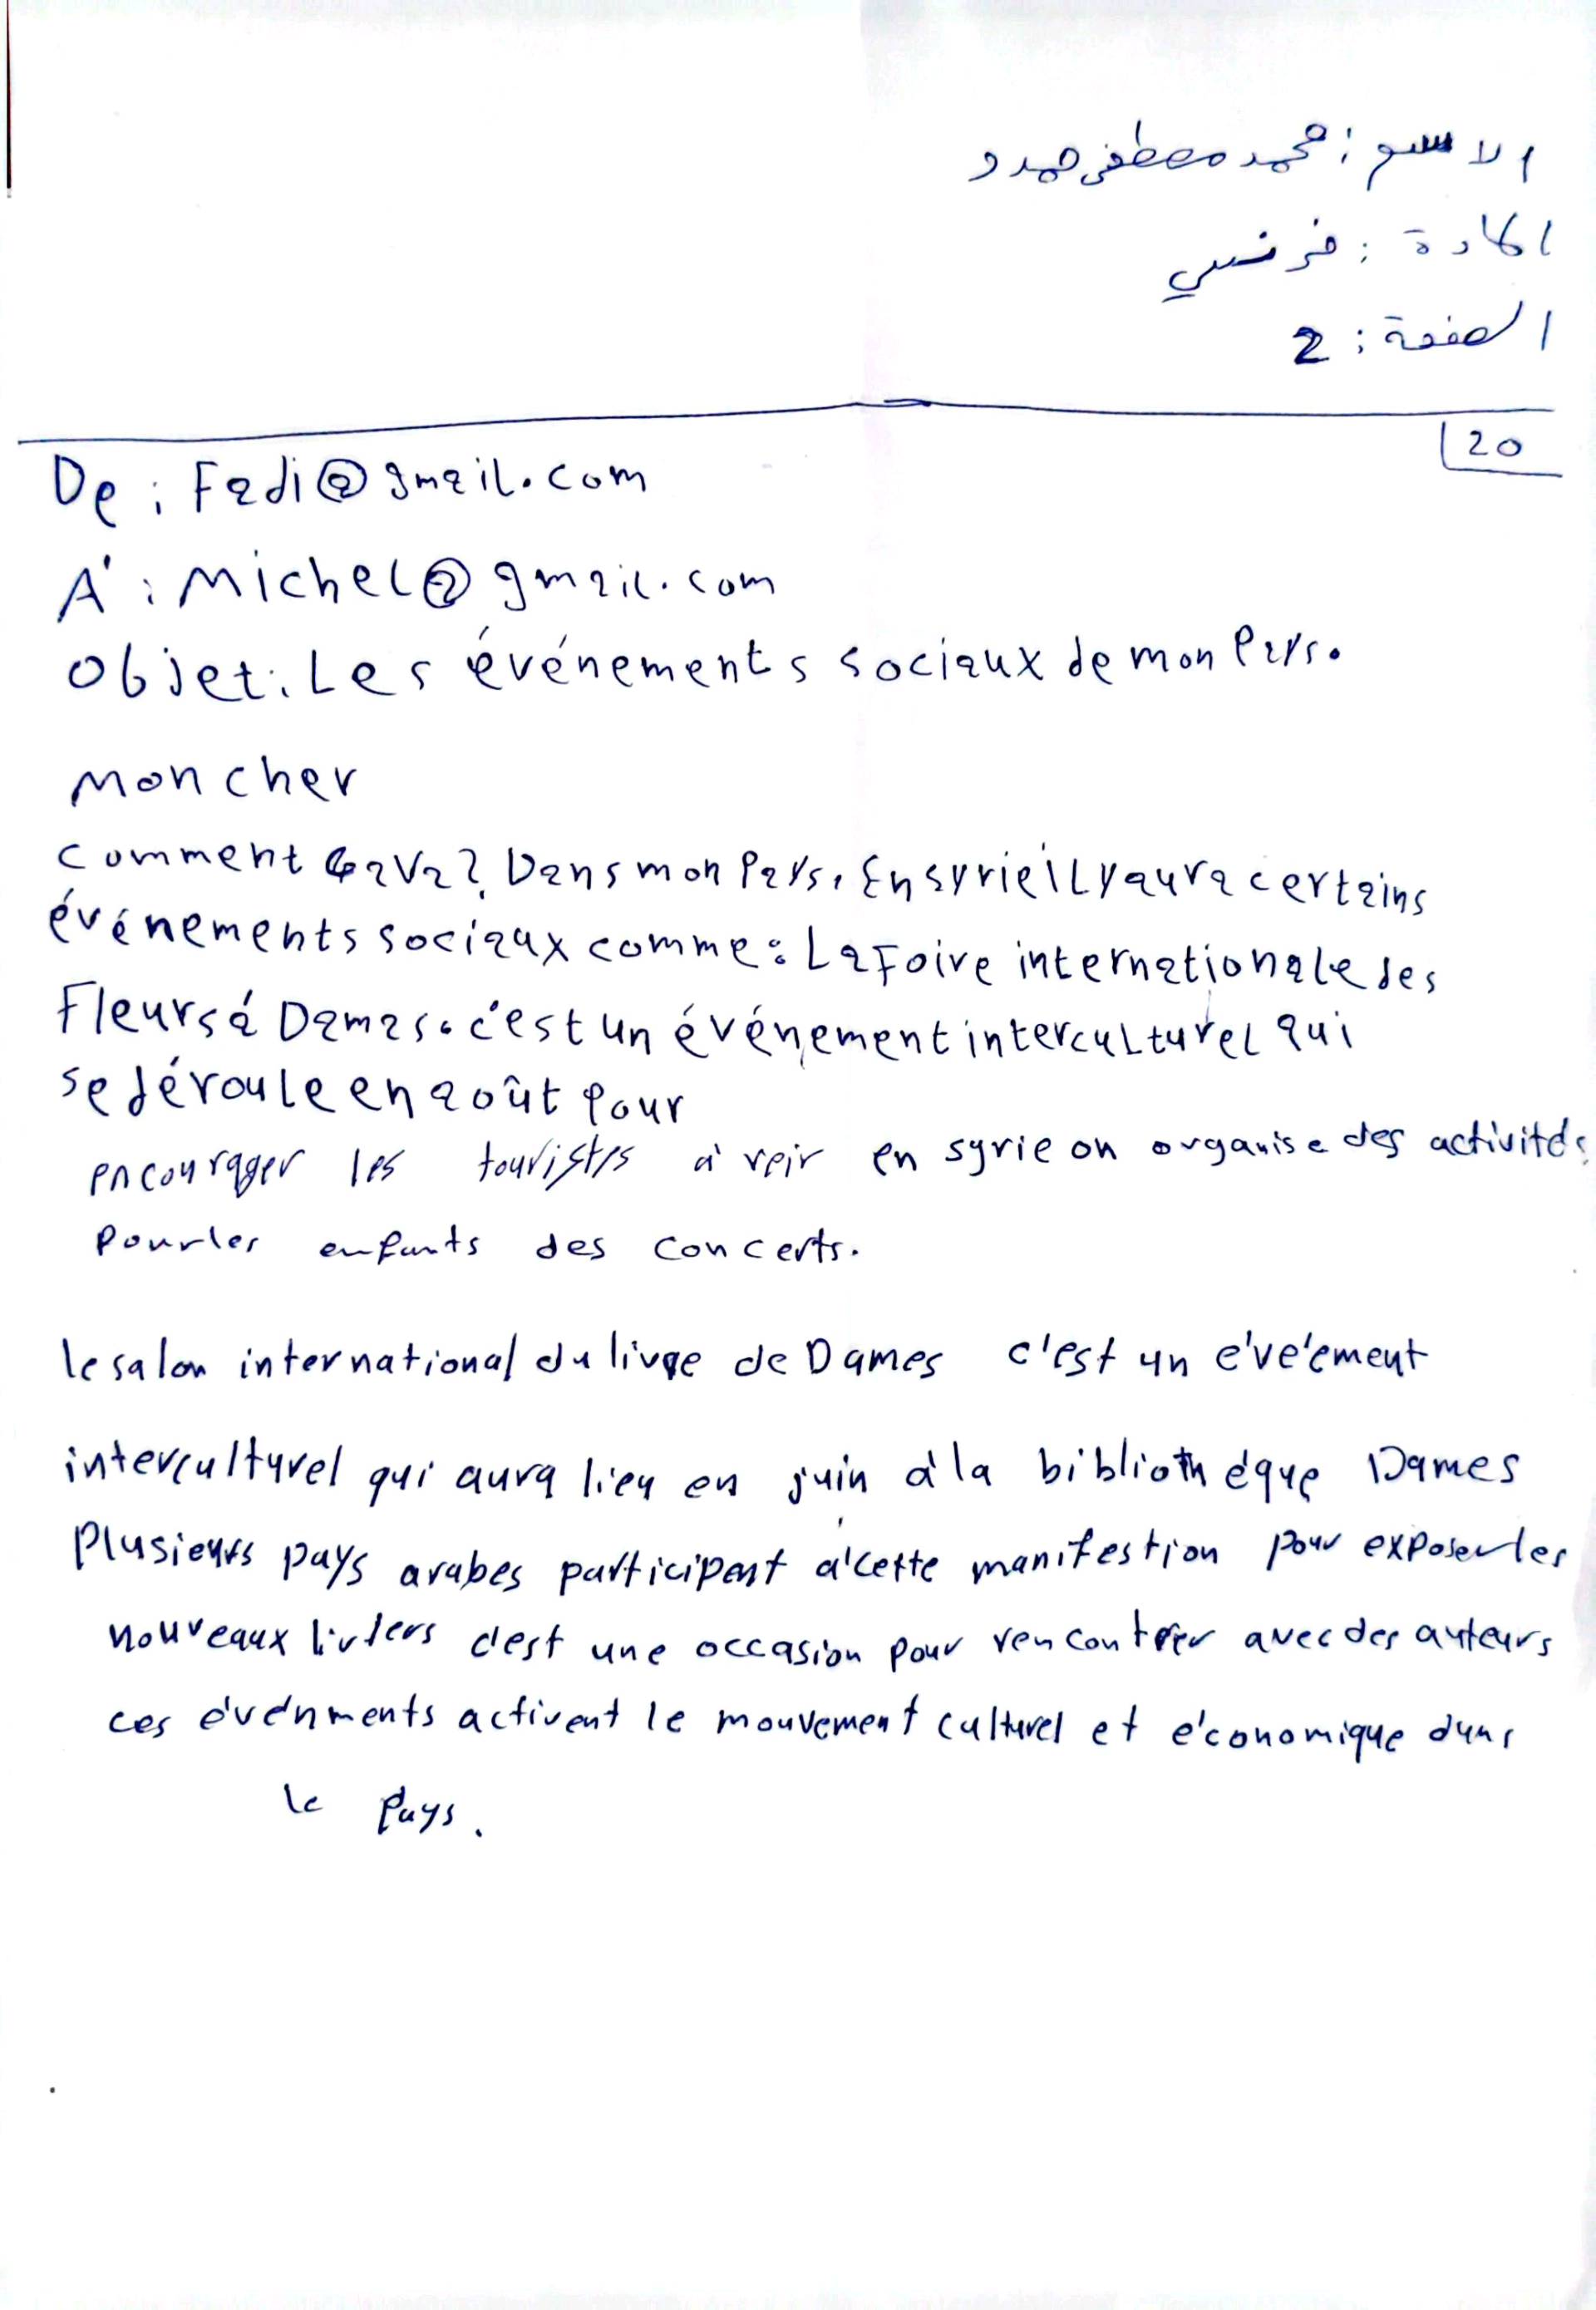 الاسم : محمد مصطفى حمدو
المادة : فرنسي
الصفحة : 2
20
De : Fadi@gmail.com
À : Michel@gmail.com
Objet : Les événements sociaux de mon Pays.
Mon cher
Comment ça va ? Dans mon Pays. En syrie il y aura certains
événements sociaux comme : La Foire internationale des
Fleurs á Damas. c'est un événement interculturel qui
se déroule en août pour
encourager les touristes à veir en syrie on organise des activités
Pour les enfants des concerts.
le salon international du livre de Dames c'est un événement
interculturel qui aura lieu en juin à la bibliothéque Dames
Plusieurs pays arabes participent à cette manifestion pour exposer les
nouveaux livters c'est une occasion pour rencontrer avec des auteurs
ces événments activent le mouvement culturel et économique dans
le pays.